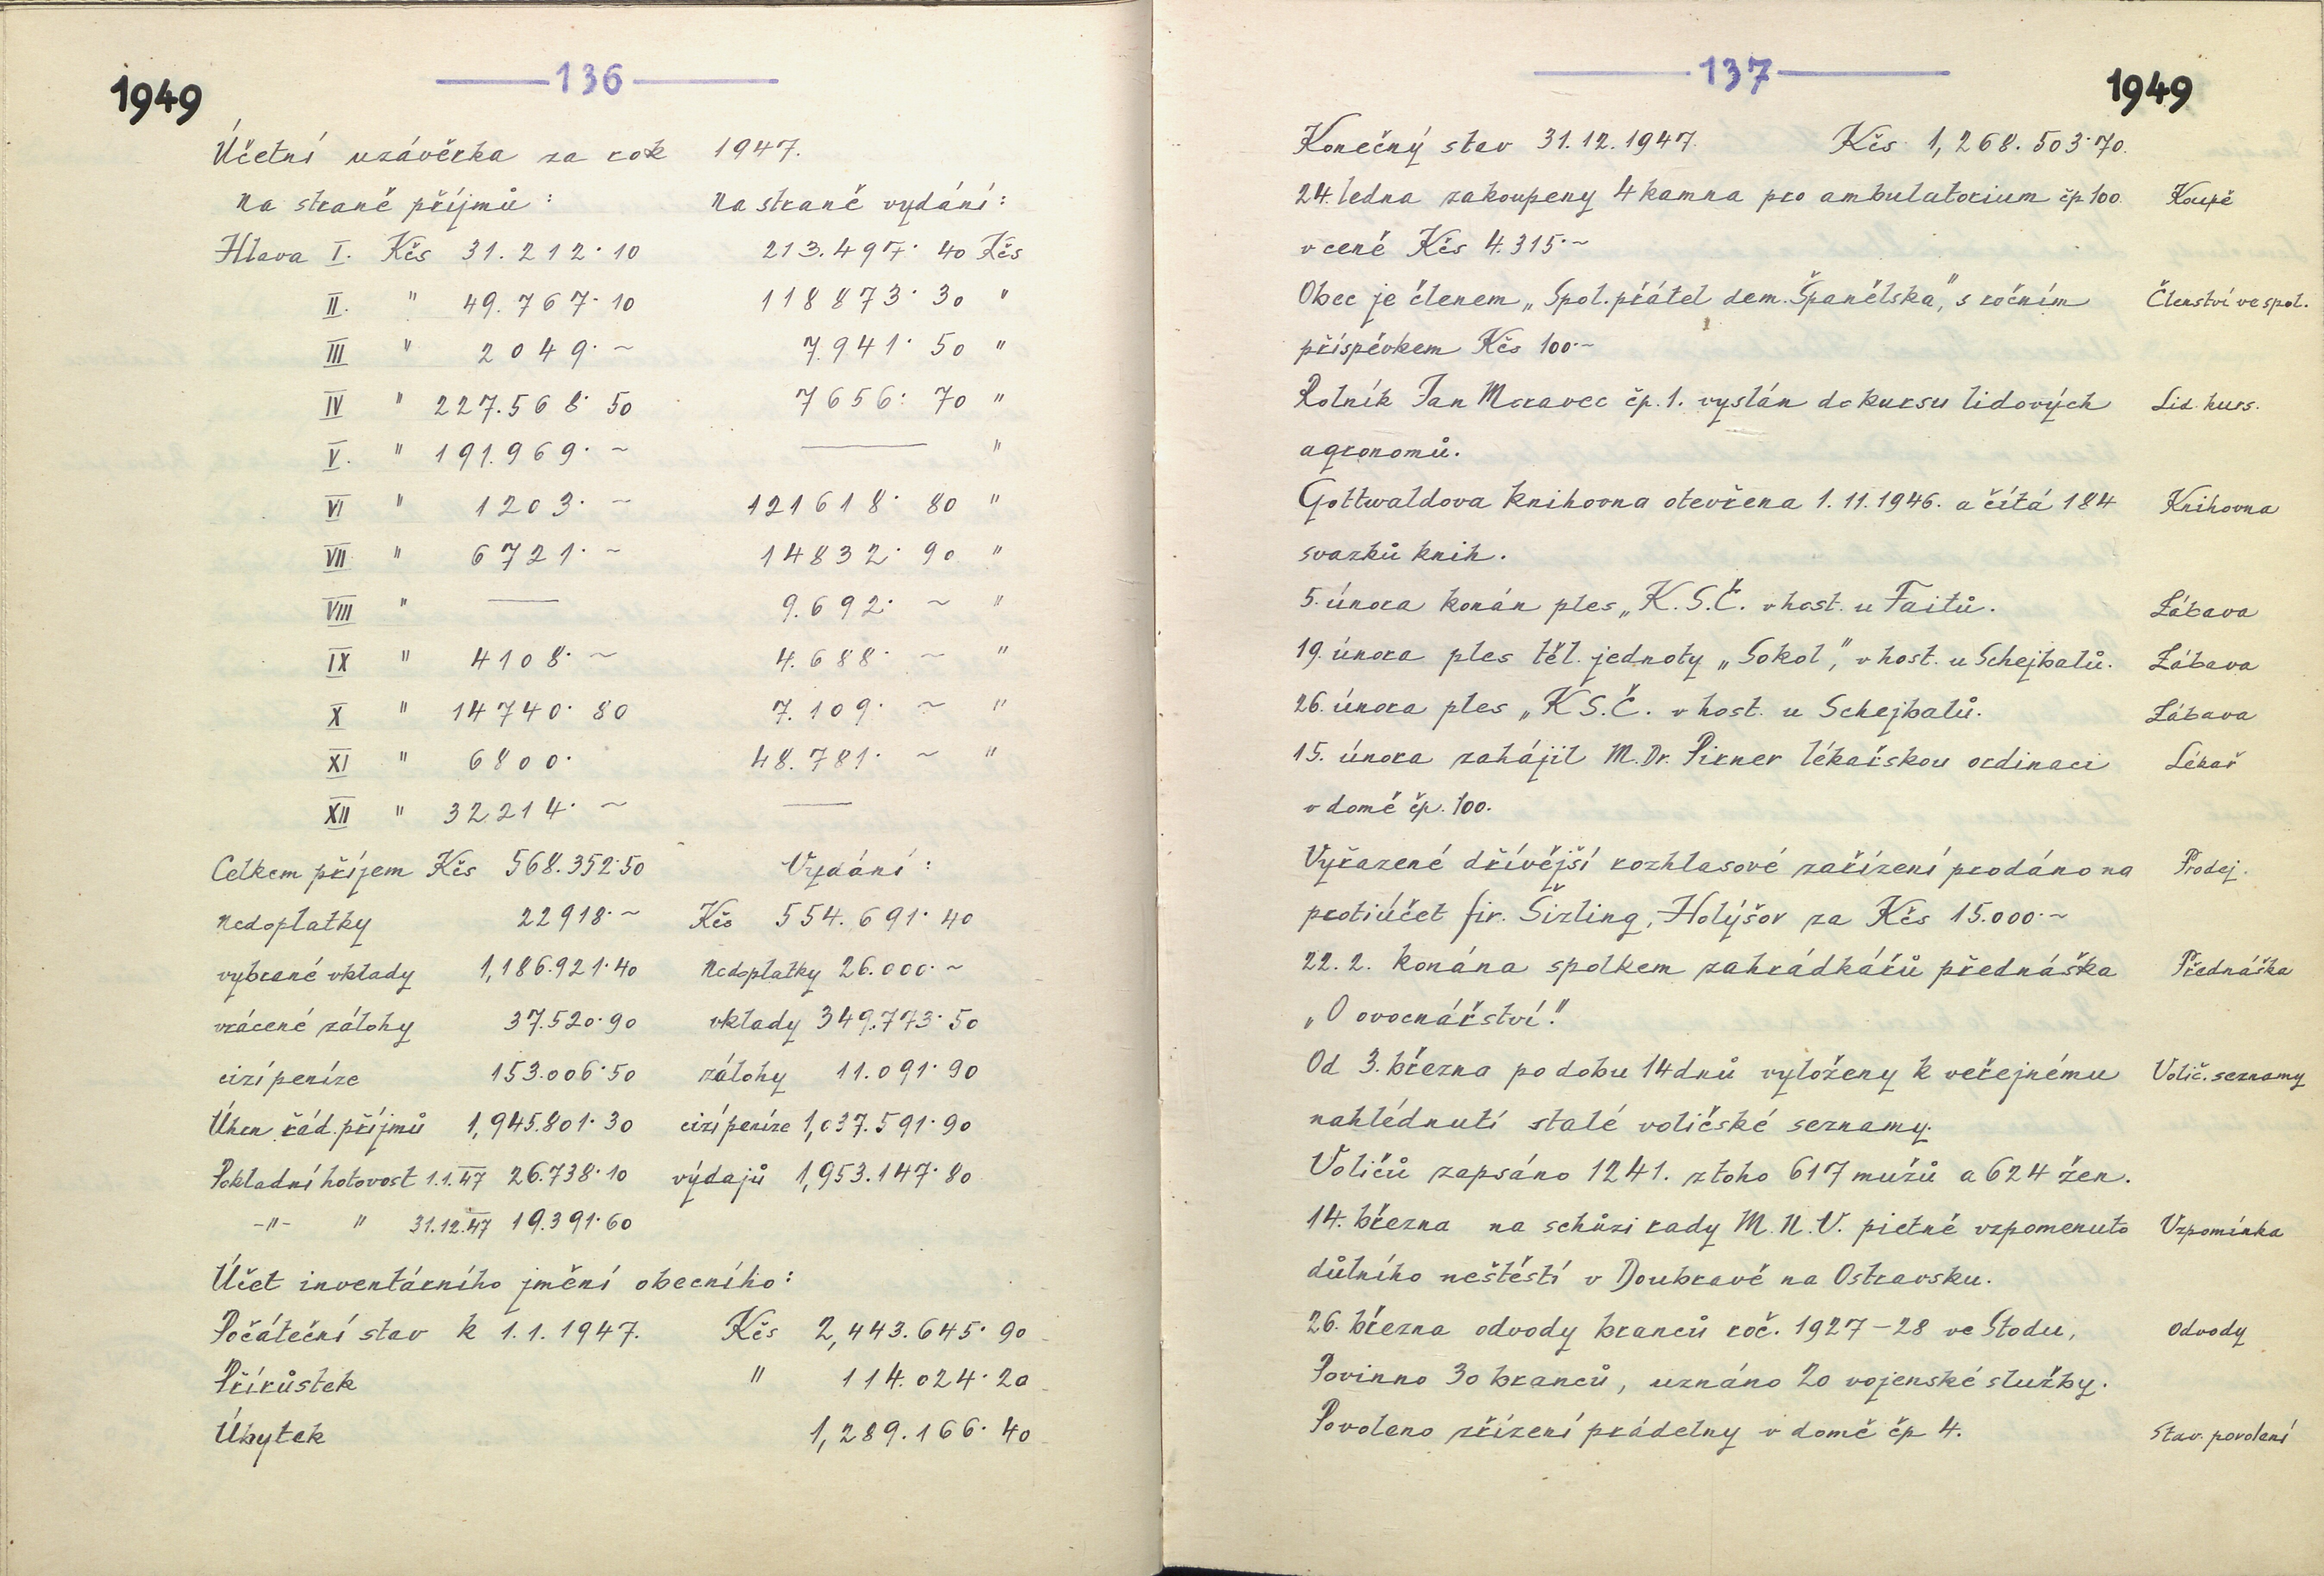 1949
136
Účetní uzávěrka za rok 1947.
Na straně příjmů: Na straně vydání:
Hlava I. Kčs 31.212·10 213.497·40 Kčs
II. " 49.767·10 118873·30 "
III " 2049·~ 7.941·50 "
IV " 227.568·50 7656·70 "
V. " 191.969·~ — "
VI " 1203·~ 121618·80 "
VII " 6721·~ 14832·90 "
VIII " — 9.692·~ "
IX " 4108·~ 4.688·~ "
X " 14740·80 7.109·~ "
XI " 6800· 48.781·~ "
XII " 32214·~ —
Celkem příjem Kčs 568.352·50 Vydání:
Nedoplatky 22918·~ Kčs 554.691·40
vybrané vklady 1,186.921·40 Nedoplatky 26.000·~
vrácené zálohy 37.520·90 vklady 349.773·50
cizí peníze 153.006·50 zálohy 11.091·90
Úhrn řád. příjmů 1,945.801·30 cizí peníze 1,037.591·90
Pokladní hotovost 1.1.47 26.738·10 výdajů 1,953.147·80
-"- " 31.12.47 19.391·60
Účet inventárního jmění obecního:
Počáteční stav k 1.1.1947. Kčs 2,443.645·90
Přírůstek " 114.024·20
Úbytek 1,289.166·40
137
1949
Konečný stav 31.12.1947. Kčs 1,268.503·70.
24. ledna zakoupeny 4 kamna pro ambulatorium čp 100. Koupě
v ceně Kčs 4.315·~
Obec je členem „Spol. přátel dem. Španělska", s ročním Členství ve spol.
příspěvkem Kčs 100·~
Rolník Jan Moravec čp. 1. vyslán do kursu lidových Lid. kurs.
agronomů.
Gottwaldova knihovna otevřena 1.11.1946. a čítá 184 Knihovna
svazků knih.
5. února konán ples „K.S.Č. v host. u Faitů. Zábava
19. února ples těl. jednoty „Sokol", v host. u Schejbalů. Zábava
26. února ples „KS.Č. v host. u Schejbalů. Zábava
15. února zahájil M.Dr. Pirner lékařskou ordinaci Lékař
v domě čp. 100.
Vyřazené dřívější rozhlasové zařízení prodáno na Prodej.
protiúčet fir. Šizling, Holýšov za Kčs 15.000·~
22.2. konána spolkem zahrádkářů přednáška Přednáška
„O ovocnářství."
Od 3. března po dobu 14 dnů vyloženy k veřejnému Volič. seznamy
nahlédnutí stálé voličské seznamy.
Voličů zapsáno 1241. z toho 617 mužů a 624 žen.
14. března na schůzi rady M.N.V. pietně vzpomenuto Vzpomínka
důlního neštěstí v Doubravě na Ostravsku.
26. března odvody branců roč. 1927-28 ve Stodu, Odvody
Povinno 30 branců, uznáno 20 vojenské služby.
Povoleno zřízení prádelny v domě čp 4. Stav. povolení